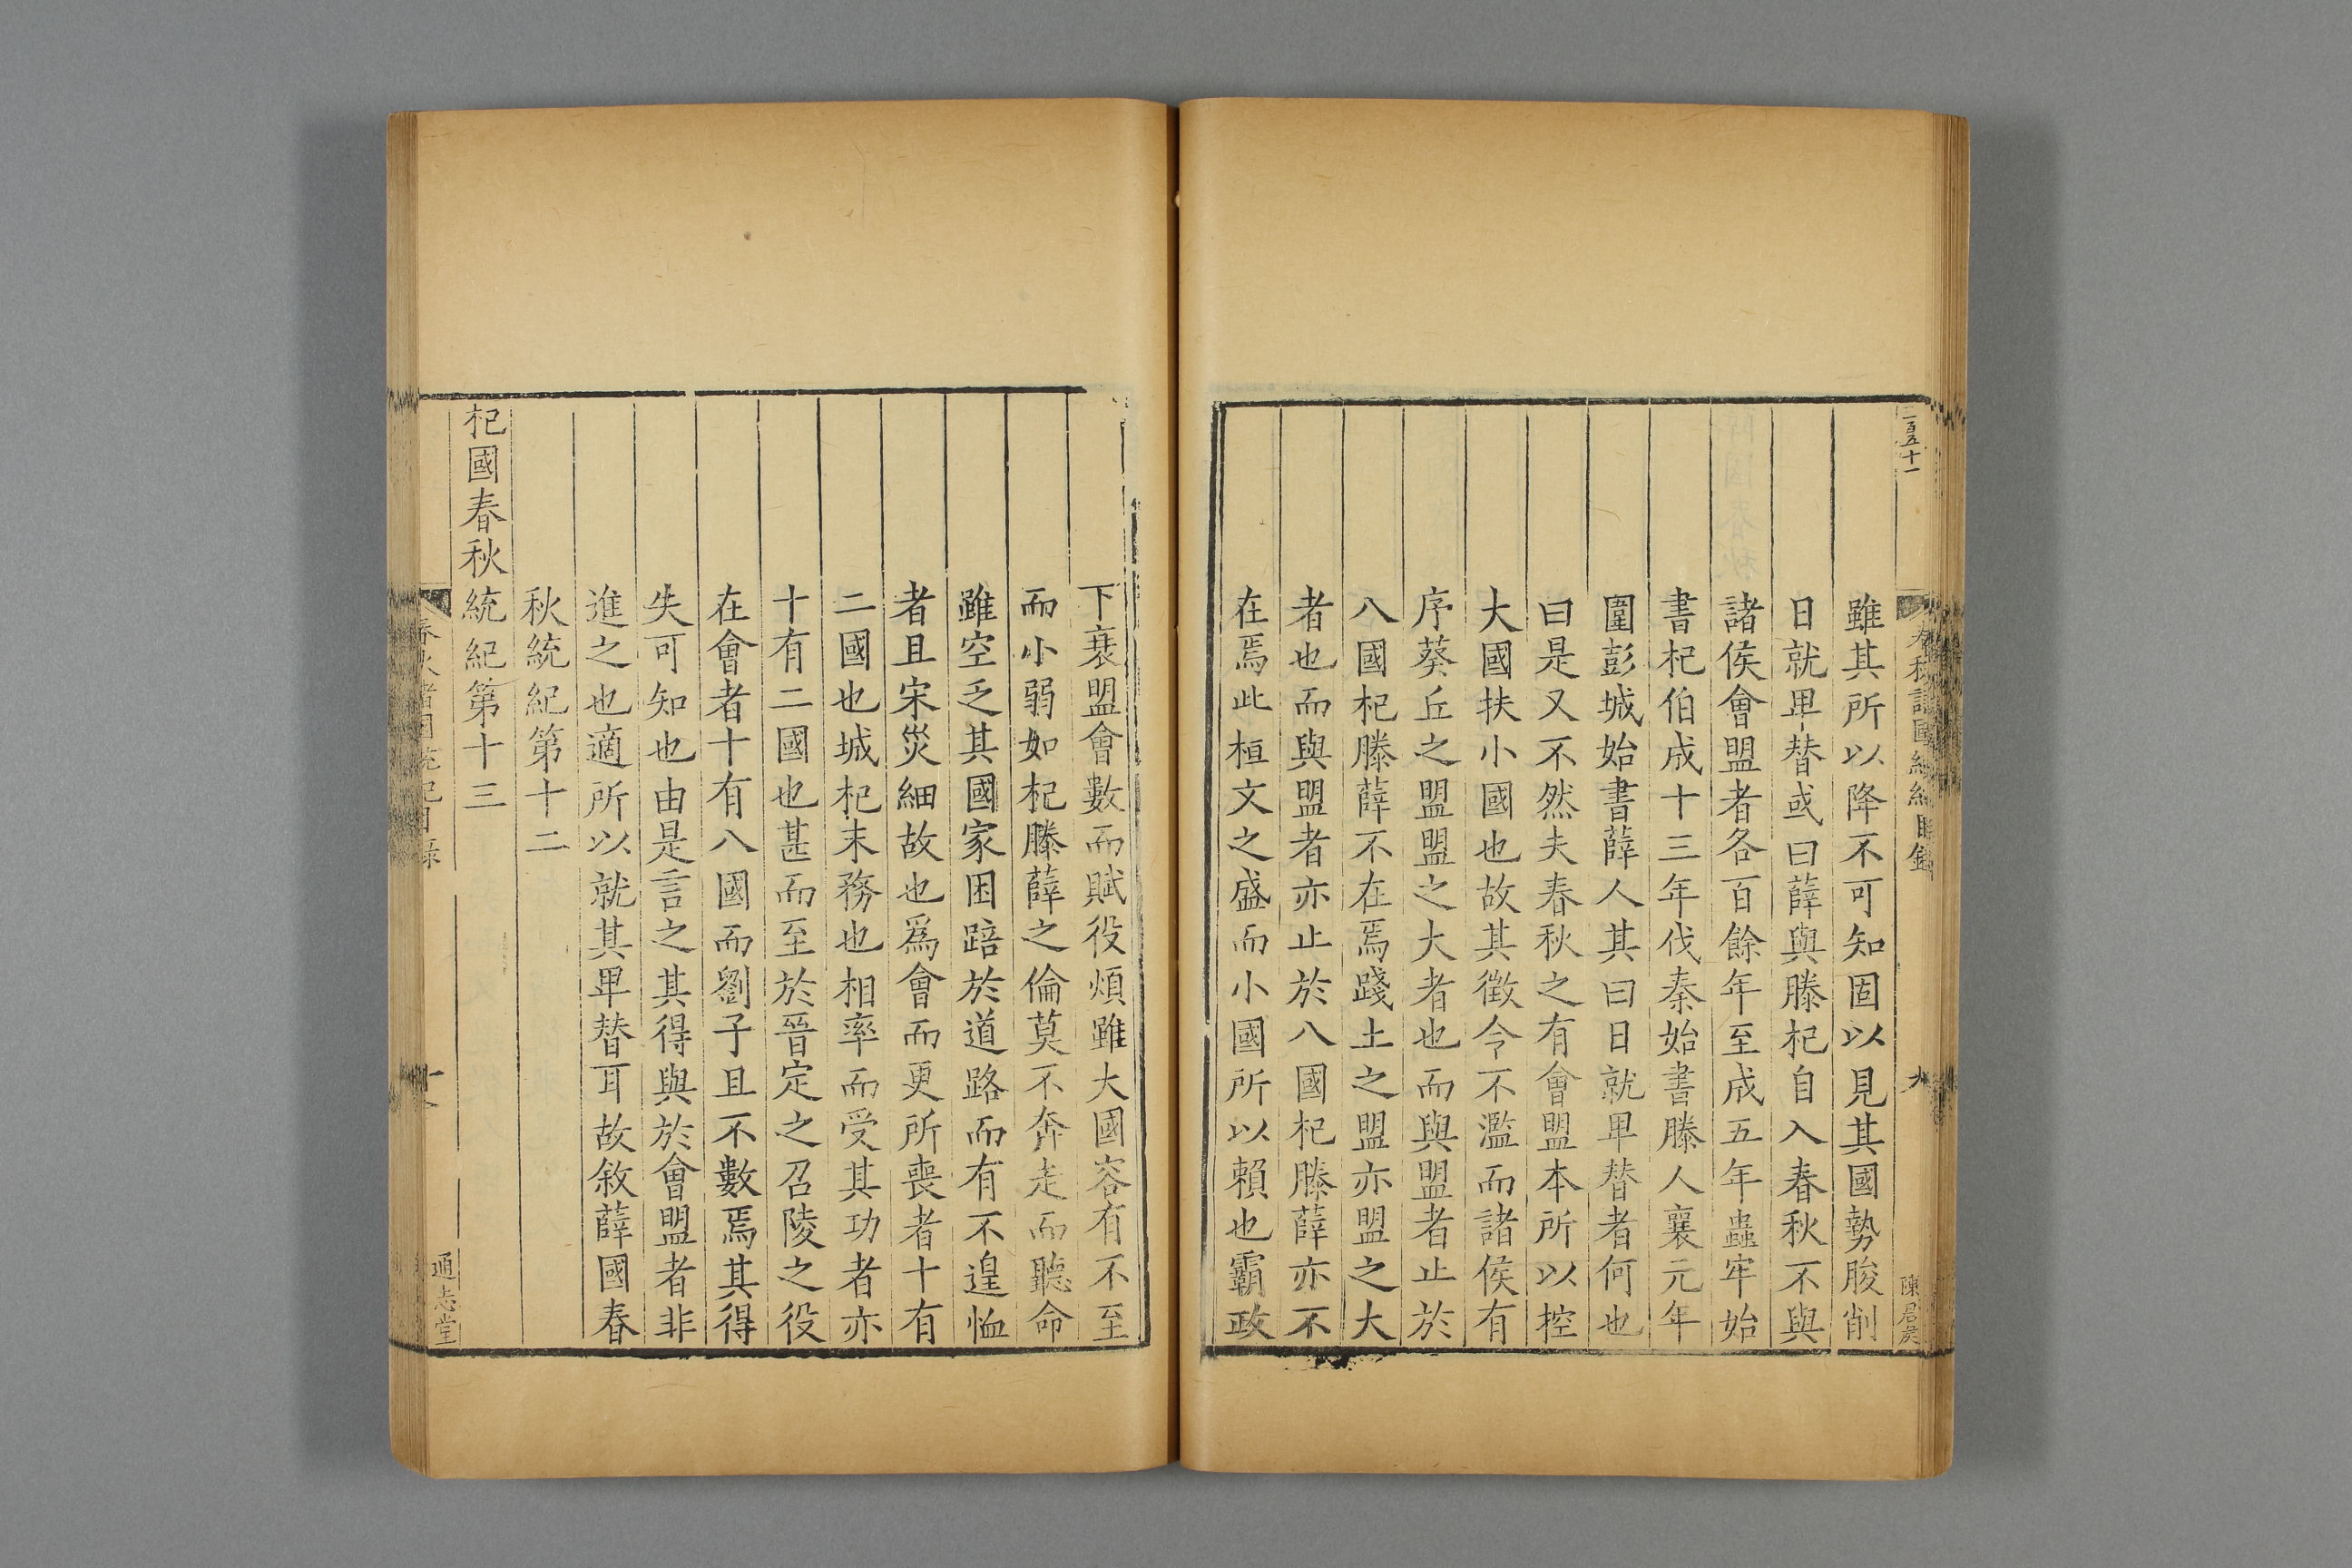 二百五十一
春秋諸國統紀目錄
九
陳君侯
雖其所以降不可知固以見其國勢朘削
日就卑替或曰薛與滕杞自入春秋不與
諸侯會盟者各百餘年至成五年蟲牢始
書杞伯成十三年伐秦始書滕人襄元年
圍彭城始書薛人其曰日就卑替者何也
曰是又不然夫春秋之有會盟本所以控
大國扶小國也故其徵令不濫而諸侯有
序葵丘之盟盟之大者也而與盟者止於
八國杞滕薛不在焉踐土之盟亦盟之大
者也而與盟者亦止於八國杞滕薛亦不
在焉此桓文之盛而小國所以賴也霸政
下衰盟會數而賦役煩雖大國容有不至
而小弱如杞滕薛之倫莫不奔走而聽命
雖空乏其國家困踣於道路而有不遑恤
者且宋災細故也爲會而更所喪者十有
二國也城杞末務也相率而受其功者亦
十有二國也甚而至於晉定之召陵之役
在會者十有八國而劉子且不數焉其得
失可知也由是言之其得與於會盟者非
進之也適所以就其卑替耳故敘薛國春
秋統紀第十二
杞國春秋統紀第十三
春秋諸國統紀目錄
通志堂